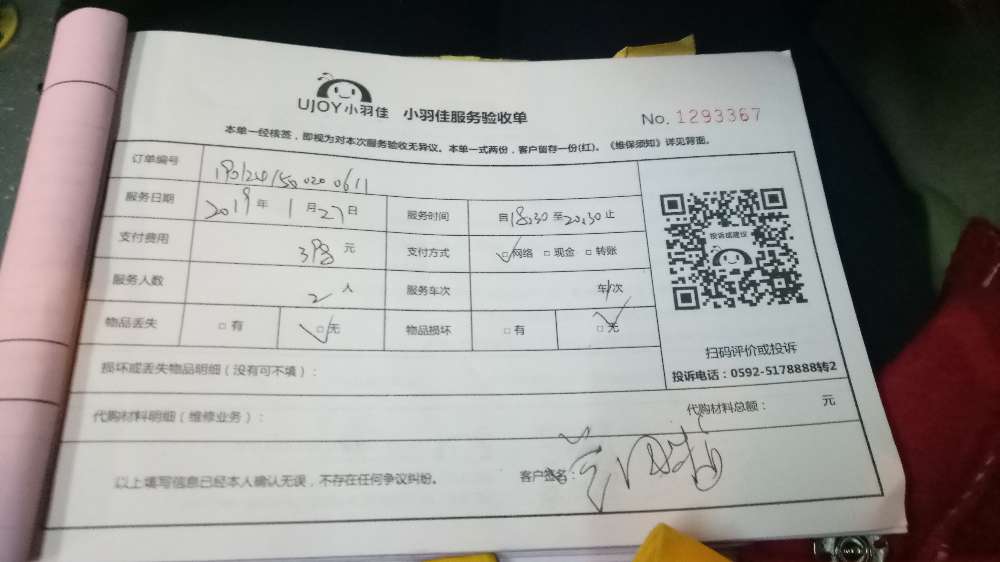 UJOY小羽佳 小羽佳服务验收单 No. 1293367
本单一经核签，即视为对本次服务验收无异议。本单一式两份，客户留存一份(红)。《维保须知》详见背面。
订单编号
服务日期 2019 年 1 月 27 日 服务时间 自 18:30 至 20:30 止
支付费用 398 元 支付方式 ☑网络 □现金 □转账
服务人数 2 人 服务车次 车/次
物品丢失 □有 ☑无 物品损坏 □有 ☑无
投诉或建议
扫码评价或投诉
投诉电话：0592-5178888转2
损坏或丢失物品明细（没有可不填）：
代购材料明细（维修业务）： 代购材料总额： 元
以上填写信息已经本人确认无误，不存在任何争议纠纷。 客户签名：